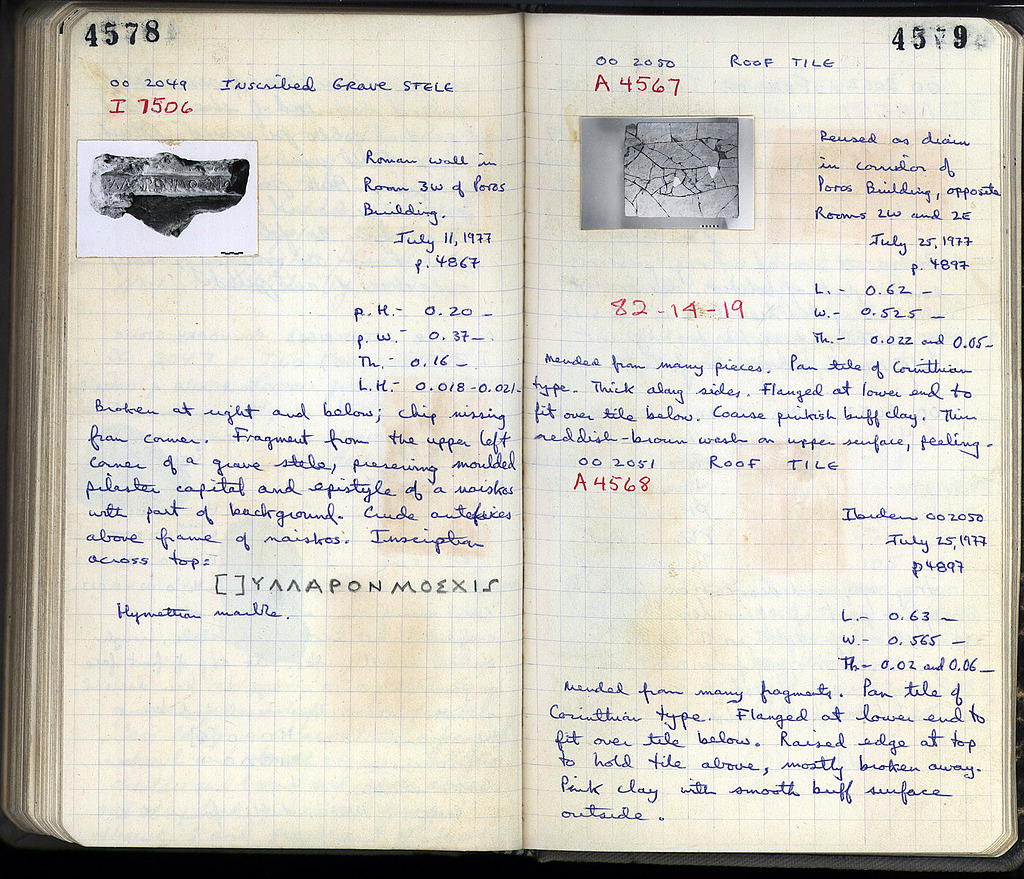 4578
OO 2049 Inscribed Grave STELE
I 7506
Roman wall in
Room 3W of Poros
Building.
July 11, 1977
p. 4867
p. H.- 0.20 -
p. W.- 0.37-.
Th.- 0.16 -
L.H.- 0.018-0.021-
Broken at right and below; chip missing
from corner. Fragment from the upper left
corner of a grave stele, preserving moulded
pilaster capital and epistyle of a naiskos
with part of background. Crude antefixes
above frame of naiskos. Inscription
across top:
[ ]ΥΛΛΑΡΟΝΜΟΣΧΙΣ
Hymettian marble.
4579
OO 2050 ROOF TILE
A 4567
Reused as drain
in corridor of
Poros Building, opposite
Rooms 2W and 2E
July 25, 1977
p. 4897
L.- 0.62 -
W.- 0.525 -
Th.- 0.022 and 0.05-
82-14-19
Mended from many pieces. Pan tile of Corinthian
type. Thick along sides. Flanged at lower end to
fit over tile below. Coarse pinkish buff clay. Thin
reddish-brown wash on upper surface, peeling.
OO 2051 ROOF TILE
A 4568
Ibidem OO2050
July 25, 1977
p4897
L.- 0.63 -
W.- 0.565 -
Th.- 0.02 and 0.06-
Mended from many fragments. Pan tile of
Corinthian type. Flanged at lower end to
fit over tile below. Raised edge at top
to hold tile above, mostly broken away.
Pink clay with smooth buff surface
outside.